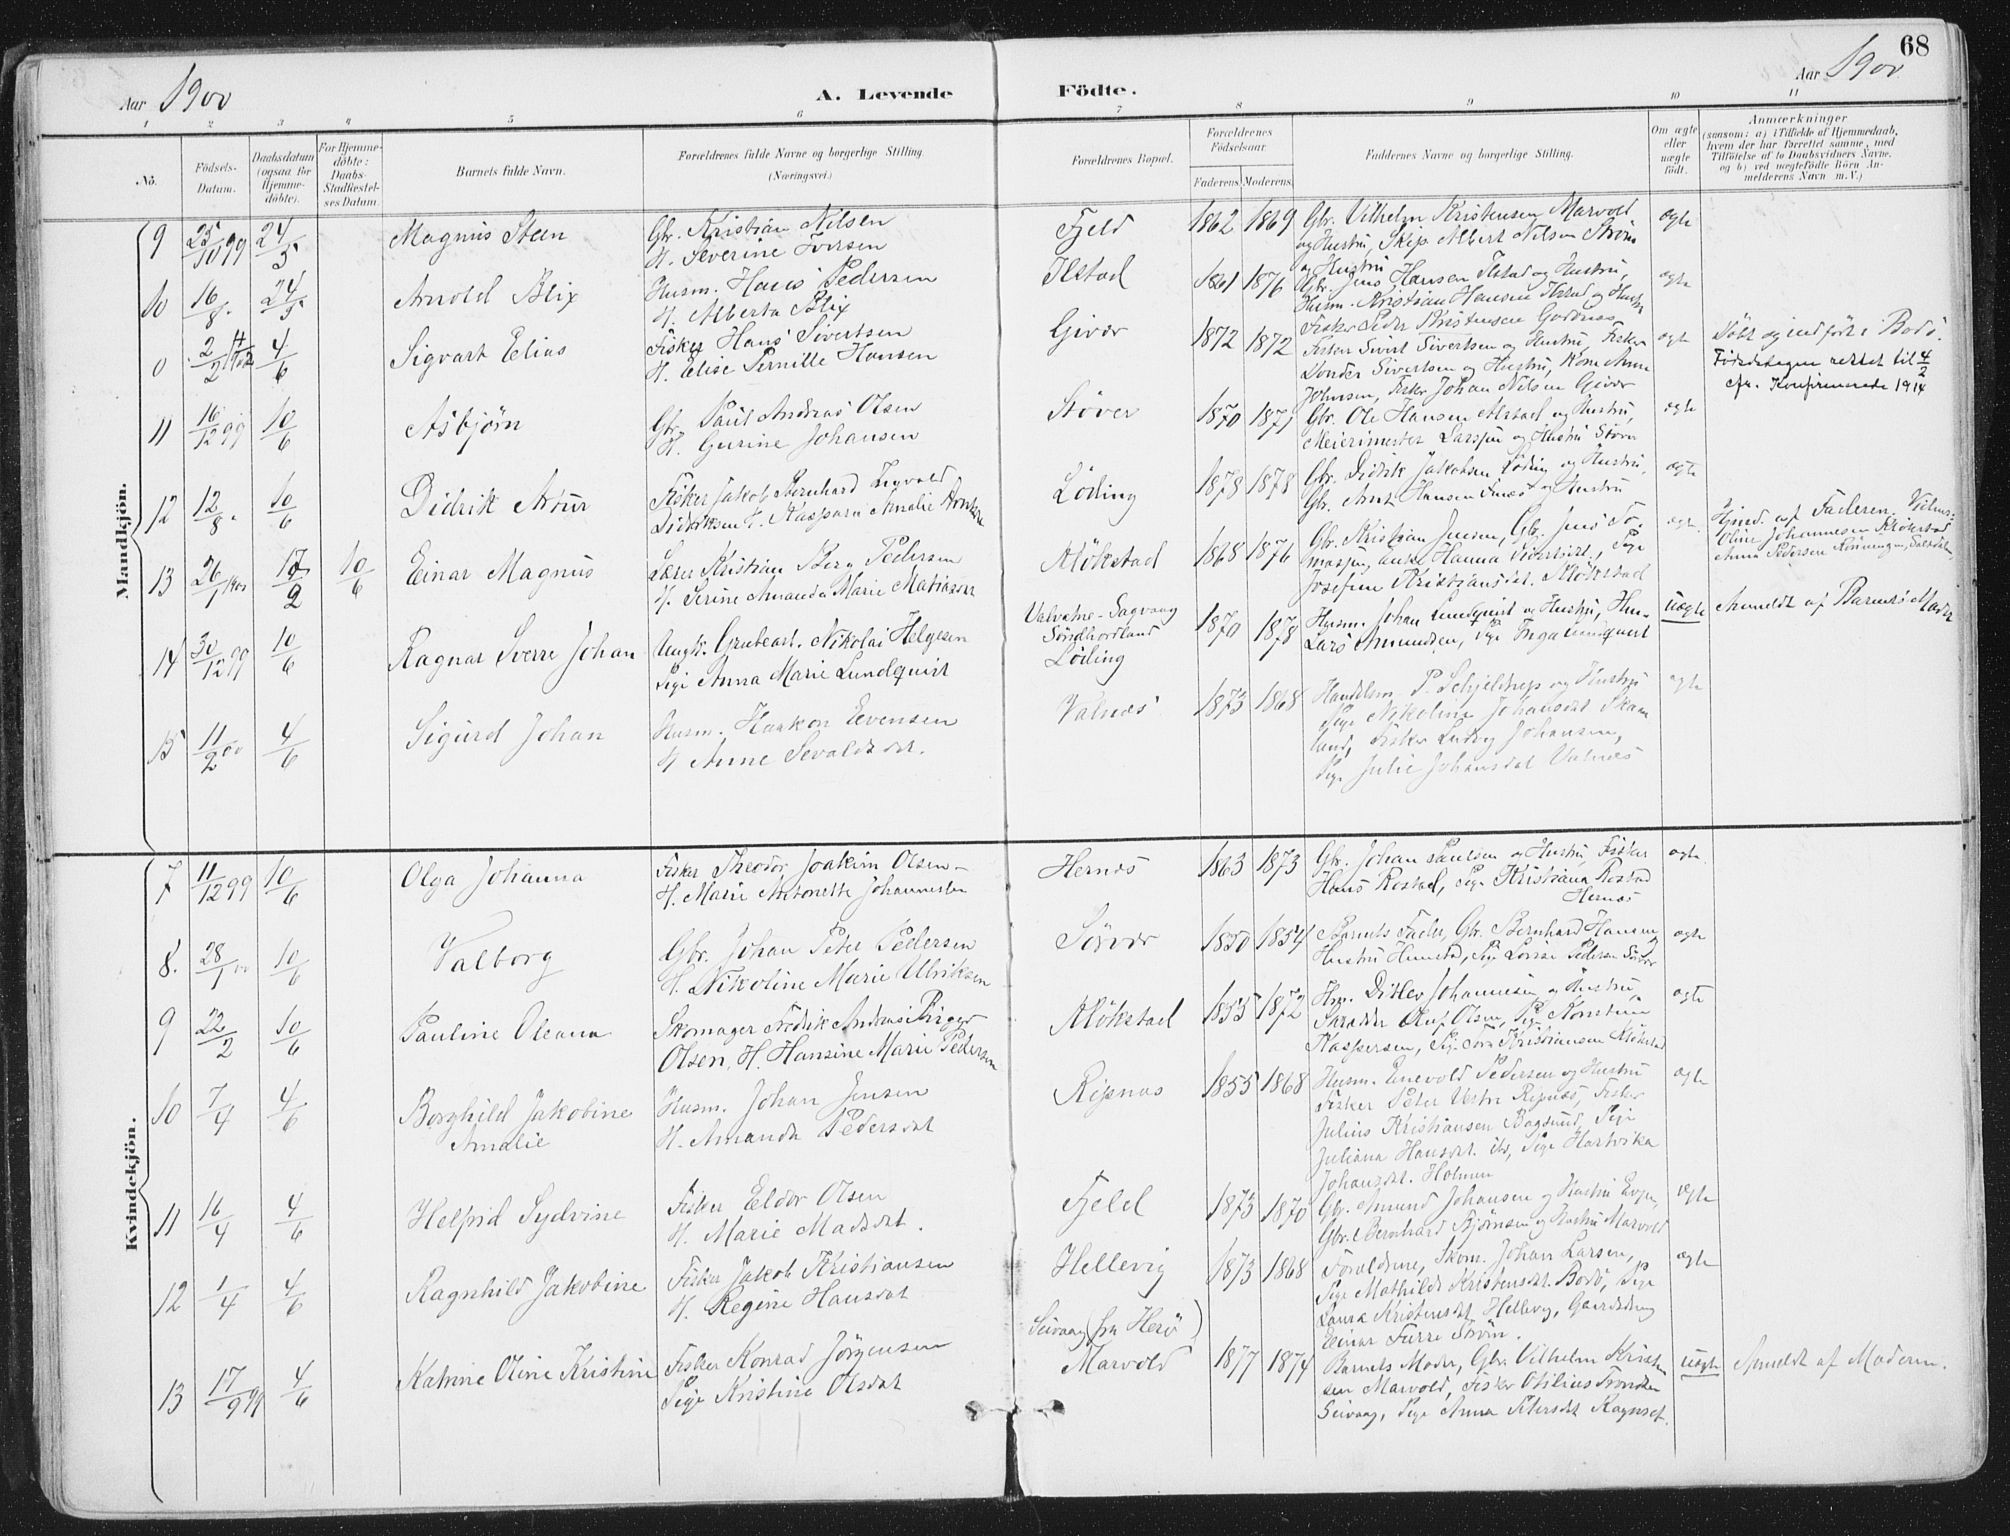 68
Aar 1900
A. Levende
Födte.
Aar 1900
1 2 3 4 5 6 7 8 9 10 11
No.
Födsels-Datum.
Daabsdatum (ogsaa for Hjemme-döbte).
For Hjemme-döbte: Daabs-Stadfæstel-ses Datum.
Barnets fulde Navn.
Forældrenes fulde Navne og borgerlige Stilling.
(Næringsvei.)
Forældrenes Bopæl.
Forældrenes Födselsaar.
Faderens. Moderens.
Faddernes Navne og borgerlige Stilling.
Om ægte eller uægte födt.
Anmærkninger
(saasom: a) i Tilfælde af Hjemmedaab,
hvem der har forrettet samme, med
Tilföielse af to Daabsvidners Navne.
og b) ved uægtefödte Börn An-
melderens Navn m. V.)
Mandkjön.
9 25/10 99 24/5 Magnus Steen
Gbr. Kristian Nilsen
H. Severine Iversen
Fjeld 1862 1869
Gbr. Vilhelm Kristensen Marvold
og Hustru, Skip. Albert Nilsen Ström
og Hustru
ægte
10 16/8 24/5 Arnold Blix
Husm. Hans Pedersen
H. Alberta Blix
Ilstad 1876
Gbr. Jens Hansen Ilstad og Hustru,
Husm. Kristian Hansen Ilstad og Hustru
ægte
0 2/2 4/6 Sigvart Elias
Fisker Hans Sivertsen
H. Elise Pernille Hansen
Givær 1872 1872
Fisker Peder Kristensen
Fisker Sivert Sivertsen og Hustru, Fisker
Sivertsen og Hustru, Kone Anne
Johnsen, Fisker Johan Nilsen Givær
ægte
Döbt og indfört i Bodö.
Födselsdagen rettet til 4/2
cfr. Konfirmerede 1914
11 16/12 99 10/6 Asbjörn
Gbr. Paul Andreas Olsen
H. Gurine Johansen
Støver 1870 1871
Gbr. Ole Hansen Alstad og Hustru,
Meierimester Larssen og Hustru Støver
ægte
12 12/8 10/6 Didrik Artur
Fisker Jakob Bernhard Sigvald
Didriksen H. Kaspara Amalie
Løding 1878 1878
Gbr. Didrik Jakobsen Løding og Hustru,
Gbr. Arnt Hansen og Hustru
ægte
13 26/1 17/2 10/6 Einar Magnus
Lærer Kristian Berg Pedersen
H. Serine Amanda Marie Matiasen
Kløkstad 1868 1876
Gbr. Kristian Jensen, Gbr. Jens To-
massen, Enke Hanna, Pige
Josefine Kristiansdt. Kløkstad
ægte
Hjmd. af Faderen. Vidner:
Oline Johannesen Kløkstad
Anna Pedersen Saltdalen
14 30/12 99 10/6 Ragnar Sverre Johan
Ungk. Grubearb. Nikolai Helgesen
Pige Anna Marie Lundquist
Valvatne - Sagvaag
Søndhordland
Løding
1870 1878
Husm. Johan Lundquist og Hustru,
Lars Amundsen, Pige Inga Lundquist
uægte
Anmeldt af Barnets Moder
15 11/2 00 4/6 Sigurd Johan
Husm. Haakon Evensen
H. Anne Sevaldsdt.
Valnes 1873 1868
Handelsm. P. Schjeldrup og Hustru
Pige Nikoline Johansdt Skan
lund, Fisker Ludvig Johansen,
Pige Julie Johansdat Valnes
ægte
Kvindekjön.
7 11/12 99 10/6 Olga Johanna
Fisker Theodor Joakim Olsen -
H. Marie Antonette Johannesen
Hernes 1863 1873
Gbr. Johan Paulsen og Hustru, Fisker
Hans Rostad, Pige Kristiana Rostad
Hernes
ægte.
8. 28/1 00 10/6 Valborg
Gbr. Johan Peter Pedersen
H. Nikoline Marie Ulriksen
Sørvær 1850 1854
Barnets Fader, Gbr. Bernhard Hansen
Hustru Hunstad, Pige Lovise Pedersen
ægte
9 22/2 10/6 Pauline Oleana
Skomager Fredrik Andreas Birger
Olsen, H. Hansine Marie Pedersen
Kløkstad 1855 1872
Hm. Ditlev Johannesen og Hustru,
Skrædder Oluf Olsen, Pige Konstanse
Kaspersen, Pige Kristiansen Kløkstad
ægte
10 7/4 4/6 Borghild Jakobine
Amalie
Husm. Johan Jensen
H. Amanda Pedersdat
Ripnes 1855 1868
Husm. Enevold Pedersen og Hustru
Fisker Peter Ripnes, Fisker
Julius Kristiansen Bogsund, Pige
Juliana Hansdt. ibd, Pige Hartvika
Johansdt. Holmen
ægte
11 16/4 4/6 Helfrid Sydvine
Fisker Eldor Olsen
H. Marie Madsdat.
Fjeld 1873 1870
Gbr. Amund Johansen og Hustru Evjen,
Gbr. Bernhard Bjørnsen og Hustru Marvold
ægte
12 1/4 4/6 Ragnhild Jakobine
Fisker Jakob Kristiansen
H. Regine Hansdat
Hellevig 1873 1868
Forældrene, Skom. Johan Larsen,
Pige Mathilde Kristensdt. Bodö, Pige
Laura Kristensdt. Hellevig, Gaardsdreng
Einar Furre Ström.
ægte
13 17/9 99 4/6 Katrine Oline Kristine
Fisker Konrad Jörgensen
Pige Kristine Olsdat
Seivaag (fra Herö)
Marvold 1877 1874
Barnets Moder, Gbr. Vilhelm Kristen
sen Marvold, Fisker Otilius
Seivaag, Pige Anna Petersdt
uægte
Anmeldt af Moderen.